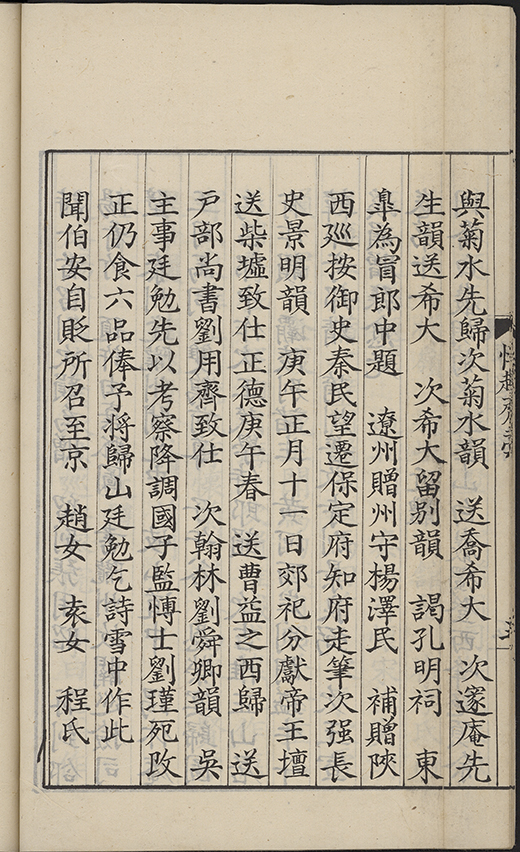 與菊水先歸次菊水韻　送喬希大　次邃庵先
生韻送希大　次希大留别韻　謁孔明祠　東
臯為冒郎中題　遼州贈州守楊澤民　補贈陝
西廵按御史秦民望遷保定府知府走筆次强長
史景明韻　庚午正月十一日郊祀分獻帝王壇
送柴墟致仕正德庚午春　送曹益之西歸　送
戸部尚書劉用齊致仕　次翰林劉舜卿韻　吳
主事廷勉先以考察降調國子監愽士劉瑾死改
正仍食六品俸予將歸山廷勉乞詩雪中作此
聞伯安自貶所召至京　趙女　袁女　程氏